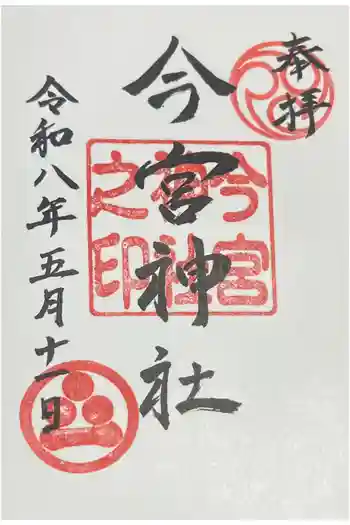 奉拝
今宮神社
今宮神社之印
令和八年五月十一日